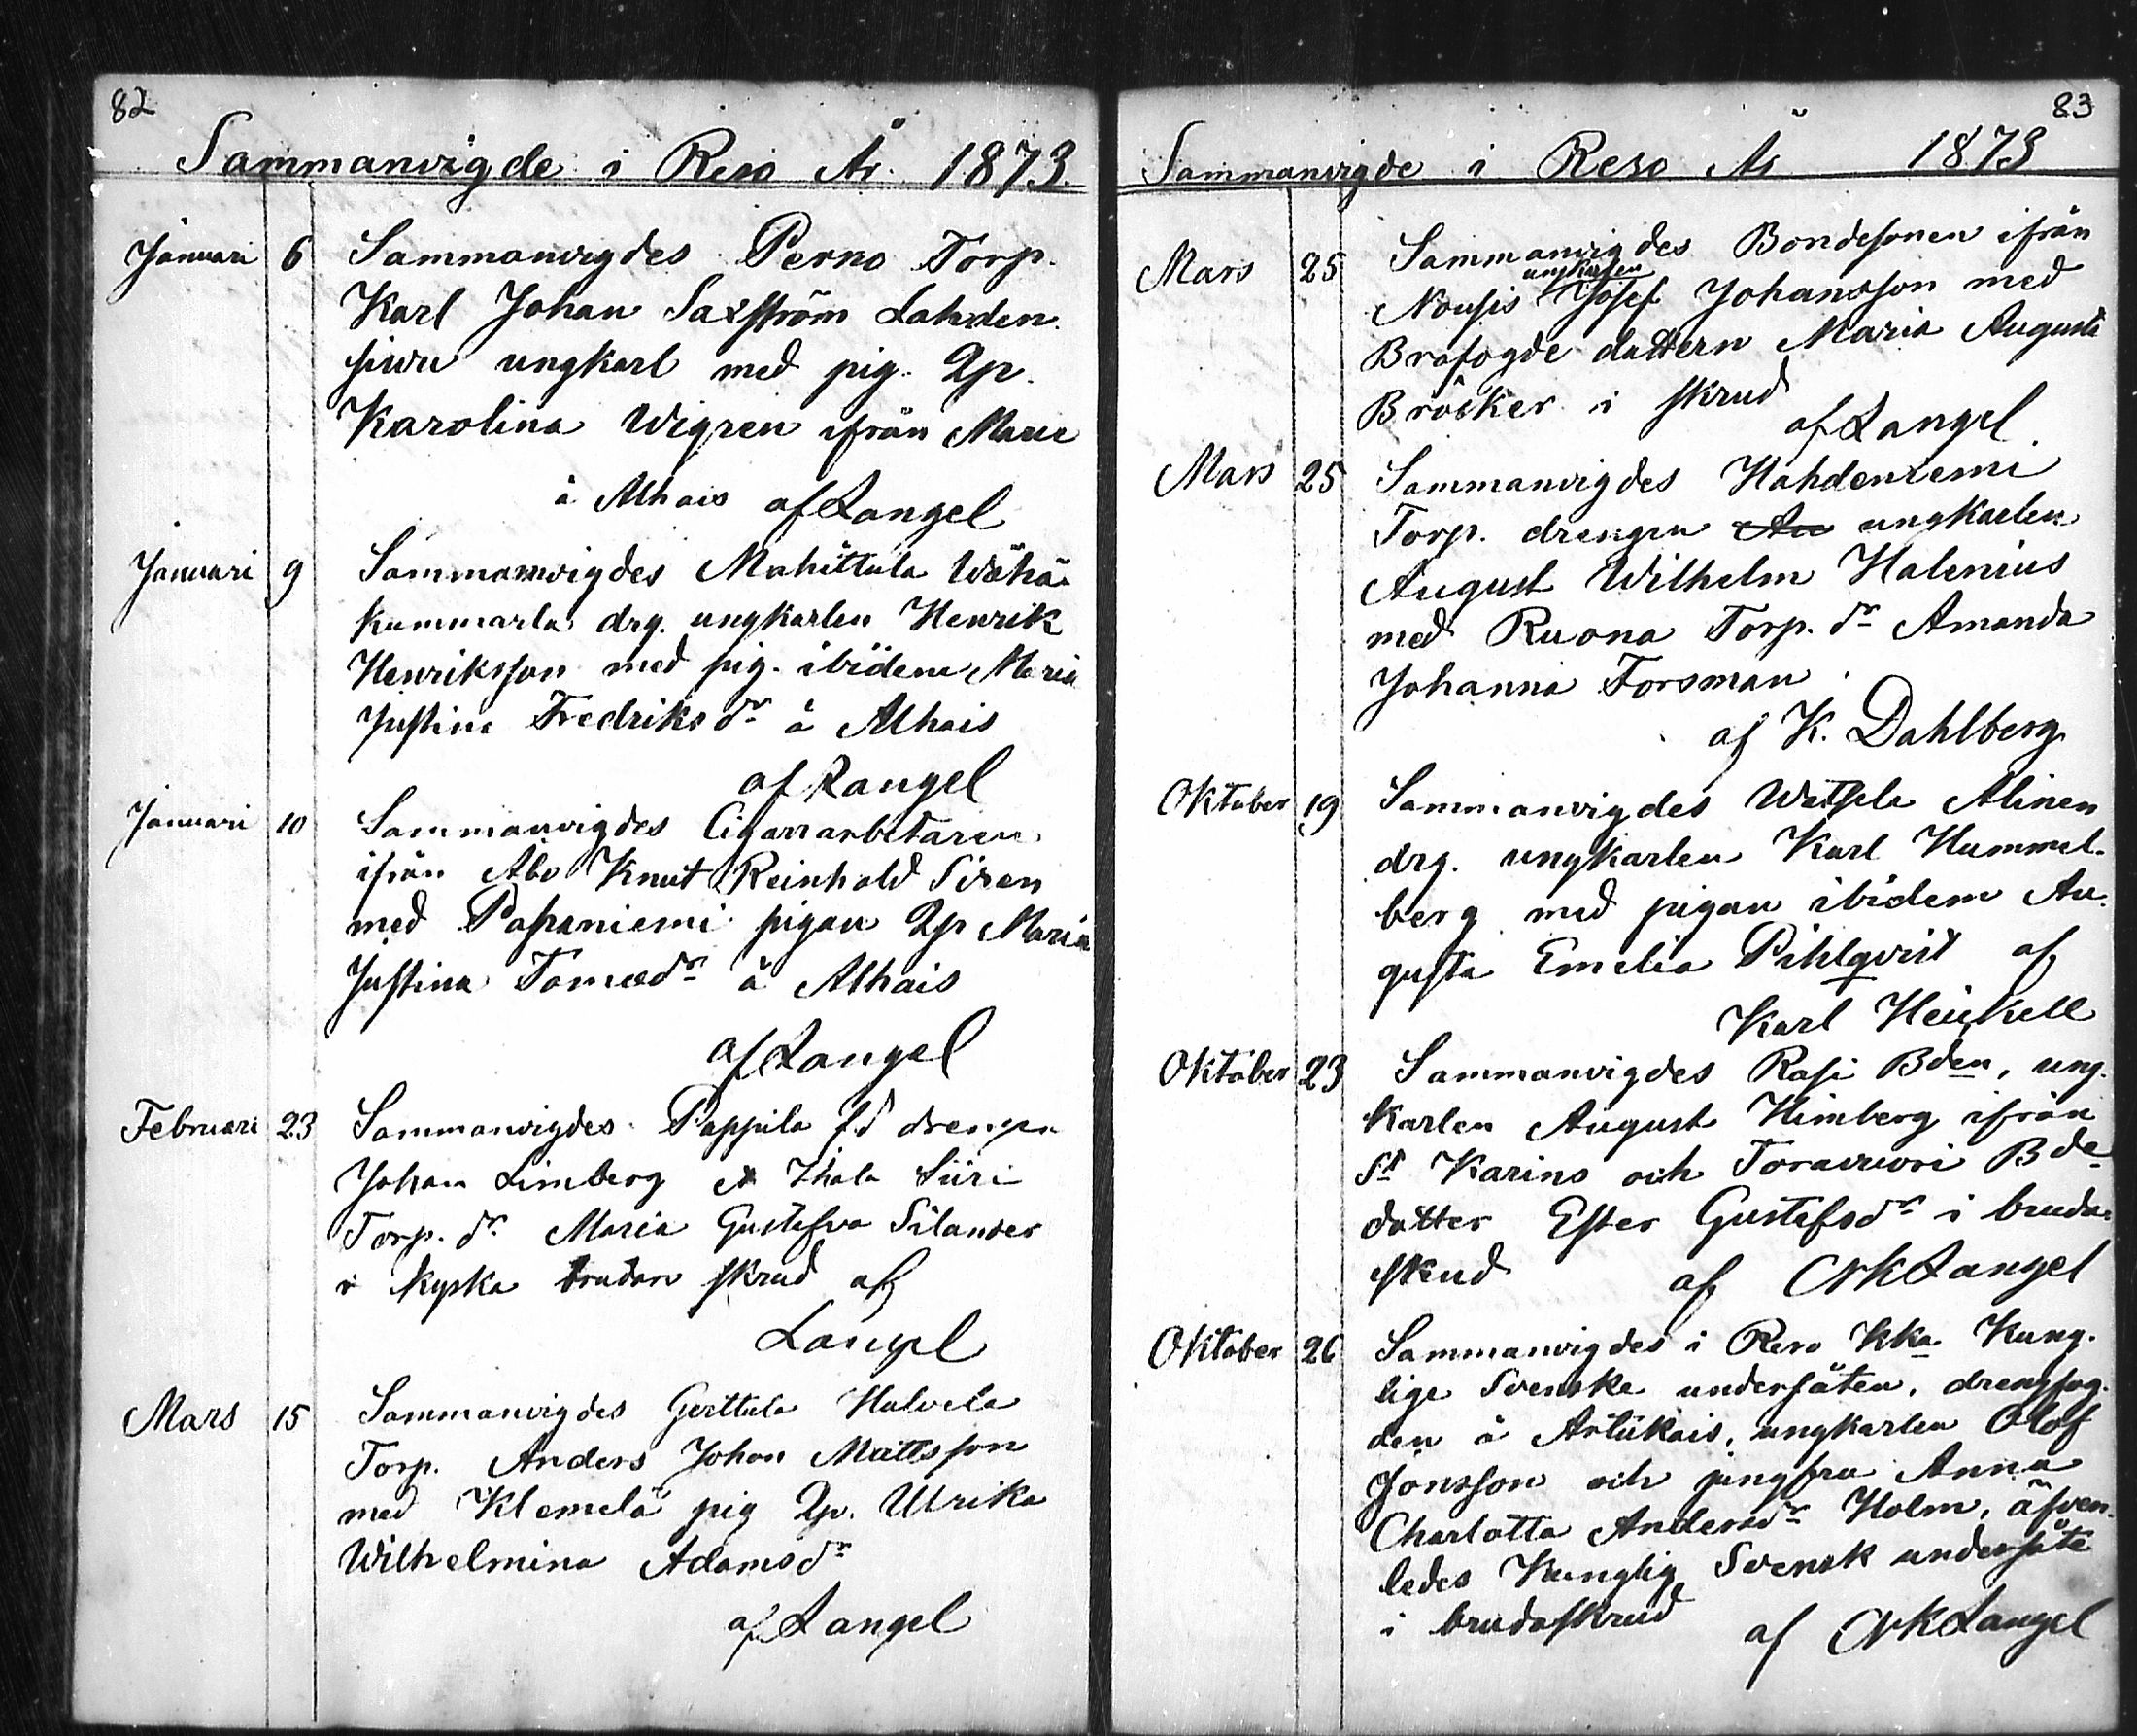 82
Sammanvigde i Reso År. 1873.
Januari 6 Sammanvigdes Perno Torp.
Karl Johan Saxström Lahden
sivu ungkarl med pig. Qp.
Karolina Wigren ifrån Maue
å Alhais af Langel
Januari 9 Sammanvigdes Mahittula Wähä
kummarla drg. ungkarlen Henrik
Henriksson med pig. ibidem Maria
Justina Fredriksdr å Alhais
af Langel
Januari 10 Sammanvigdes Cigarrarbetaren
ifrån Åbo Knut Reinhold Siren
med Papaniemi pigan Qp Maria
Justina Tomasdr å Alhais
af Langel
Februari 23 Sammanvigdes Pappila fd drengen
Johan Limberg & Ihala Siiri
Torp. dr Maria Gustafva Silander
i kyska brudars skrud af
Langel
Mars 15 Sammanvigdes Gerttula Halvela
Torp. Anders Johan Mattsson
med Klemelä pig Qp. Ulrika
Wilhelmina Adamsdr
af Langel
83
Sammanvigde i Reso År 1873
Mars 25 Sammanvigdes Bondesonen ifrån
Nousis ungkarlen Josef Johansson med
Brofogde dottern Maria Augusta
Bröcker i skrud
af Langel.
Mars 25 Sammanvigdes Hahdenniemi
Torp. drengen Au ungkarlen
August Wilhelm Halenius
med Ruona Torp. dr Amanda
Johanna Forsman
af K. Dahlberg
Oktober 19 Sammanvigdes Watsela Alinen
drg. ungkarlen Karl Hummel-
berg med pigan ibidem Au-
gusta Emelia Pihlqvist af
Karl Heickell
Oktober 23 Sammanvigdes Rasi Bden, ung-
karlen August Himberg ifrån
St Karins och Toravuori Bde
dotter Ester Gustafsdr i bruda-
skrud af CNKLangel
Oktober 26 Sammanvigdes i Reso Kka Kung-
lige Svenske undersåten, drengfog-
den å Artukais, ungkarlen Olof
Jonsson och jungfru Anna
Charlotta Andersdr Holm, äfven-
ledes Kunglig Svensk undersåte
i brudaskrud af CNKLangel